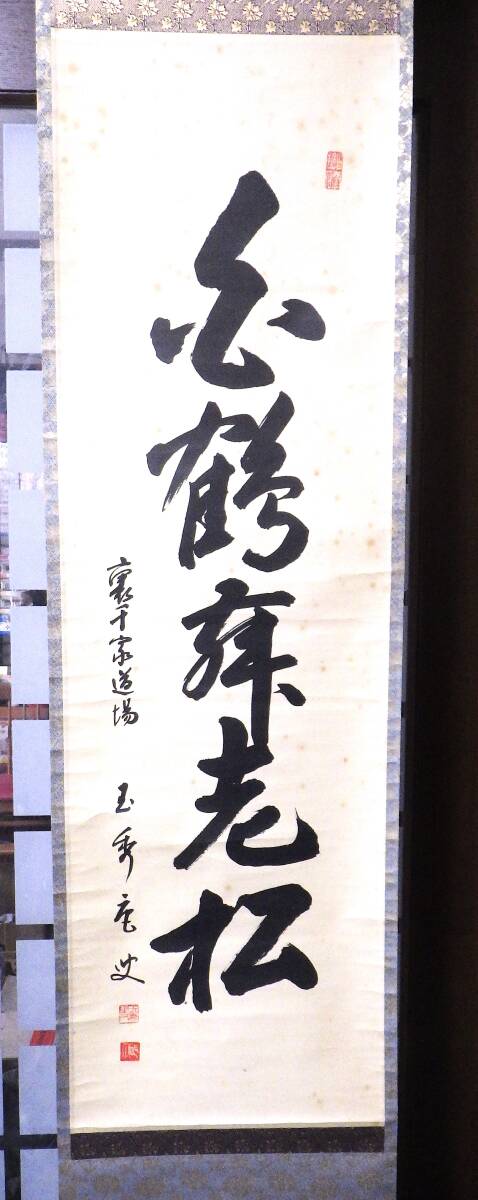 白鶴舞老松
裏千家道場
玉秀庵 叟